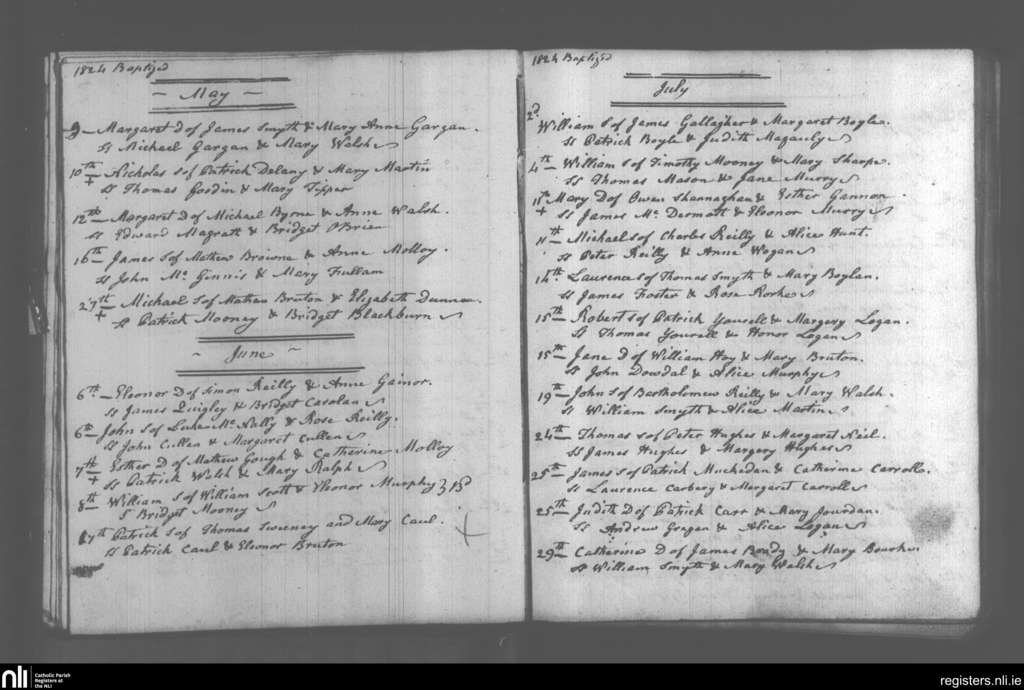 1824 Baptized
May
9 Margaret D of James Smyth & Mary Anne Gargan.
Ss Michael Gargan & Mary Walsh
10th Nicholas S of Patrick Delany & Mary Martin
Ss Thomas Goodin & Mary Tipper
12th Margaret D of Michael Byrne & Anne Walsh.
Ss Edward Magratt & Bridget O'Brien
16th James S of Mathew Browne & Anne Molloy.
Ss John Mc Ginnis & Mary Fullam
27th Michael S of Mathew Bruton & Elizabeth Dunnon.
Ss Patrick Mooney & Bridget Blackburn
June
6th Eleonor D of Simon Reilly & Anne Gainor.
Ss James Quigley & Bridget Casolan
6th John S of Luke Mc Nally & Rose Reilly.
Ss John Cullen & Margaret Cullen
7th Esther D of Mathew Gough & Catherine Molloy
Ss Patrick Walsh & Mary Ralph
8th William S of William Scott & Eleonor Murphy
S Bridget Mooney
17th Patrick S of Thomas Sweeney and Mary Caul.
Ss Patrick Caul & Eleonor Bruton
1824 Baptized
July
2d William S of James Gallagher & Margaret Boylen.
Ss Patrick Boyle & Judith Magauly
4th William S of Timothy Mooney & Mary Sharpe.
Ss Thomas Mason & Jane Murry
11th Mary D of Owen Shannaghan & Esther Gannon
Ss James Mc Dermott & Eleonor Murry
11th Michael S of Charles Reilly & Alice Hunt.
Ss Peter Reilly & Anne Hogan
14th Laurence S of Thomas Smyth & Mary Boylan.
Ss James Foster & Rose Rorke
15th Robert S of Patrick Yourell & Margery Logan.
Ss Thomas Yourell & Honor Logan
15th Jane D of William Hoy & Mary Bruton.
Ss John Dowdal & Alice Murphy
19th John S of Bartholomew Reilly & Mary Walsh.
Ss William Smyth & Alice Martin
24th Thomas S of Peter Hughes & Margaret Neil.
Ss James Hughes & Margery Hughes
25th James S of Patrick Muckedan & Catherine Carroll.
Ss Laurence Carbery & Margaret Carroll
25th Judith D of Patrick Carr & Mary Jourdan.
Ss Andrew Gragan & Alice Logan
29th Catherine D of James Brady & Mary Bourke.
Ss William Smyth & Mary Walsh
nli
Catholic Parish
Registers at
the NLI
registers.nli.ie